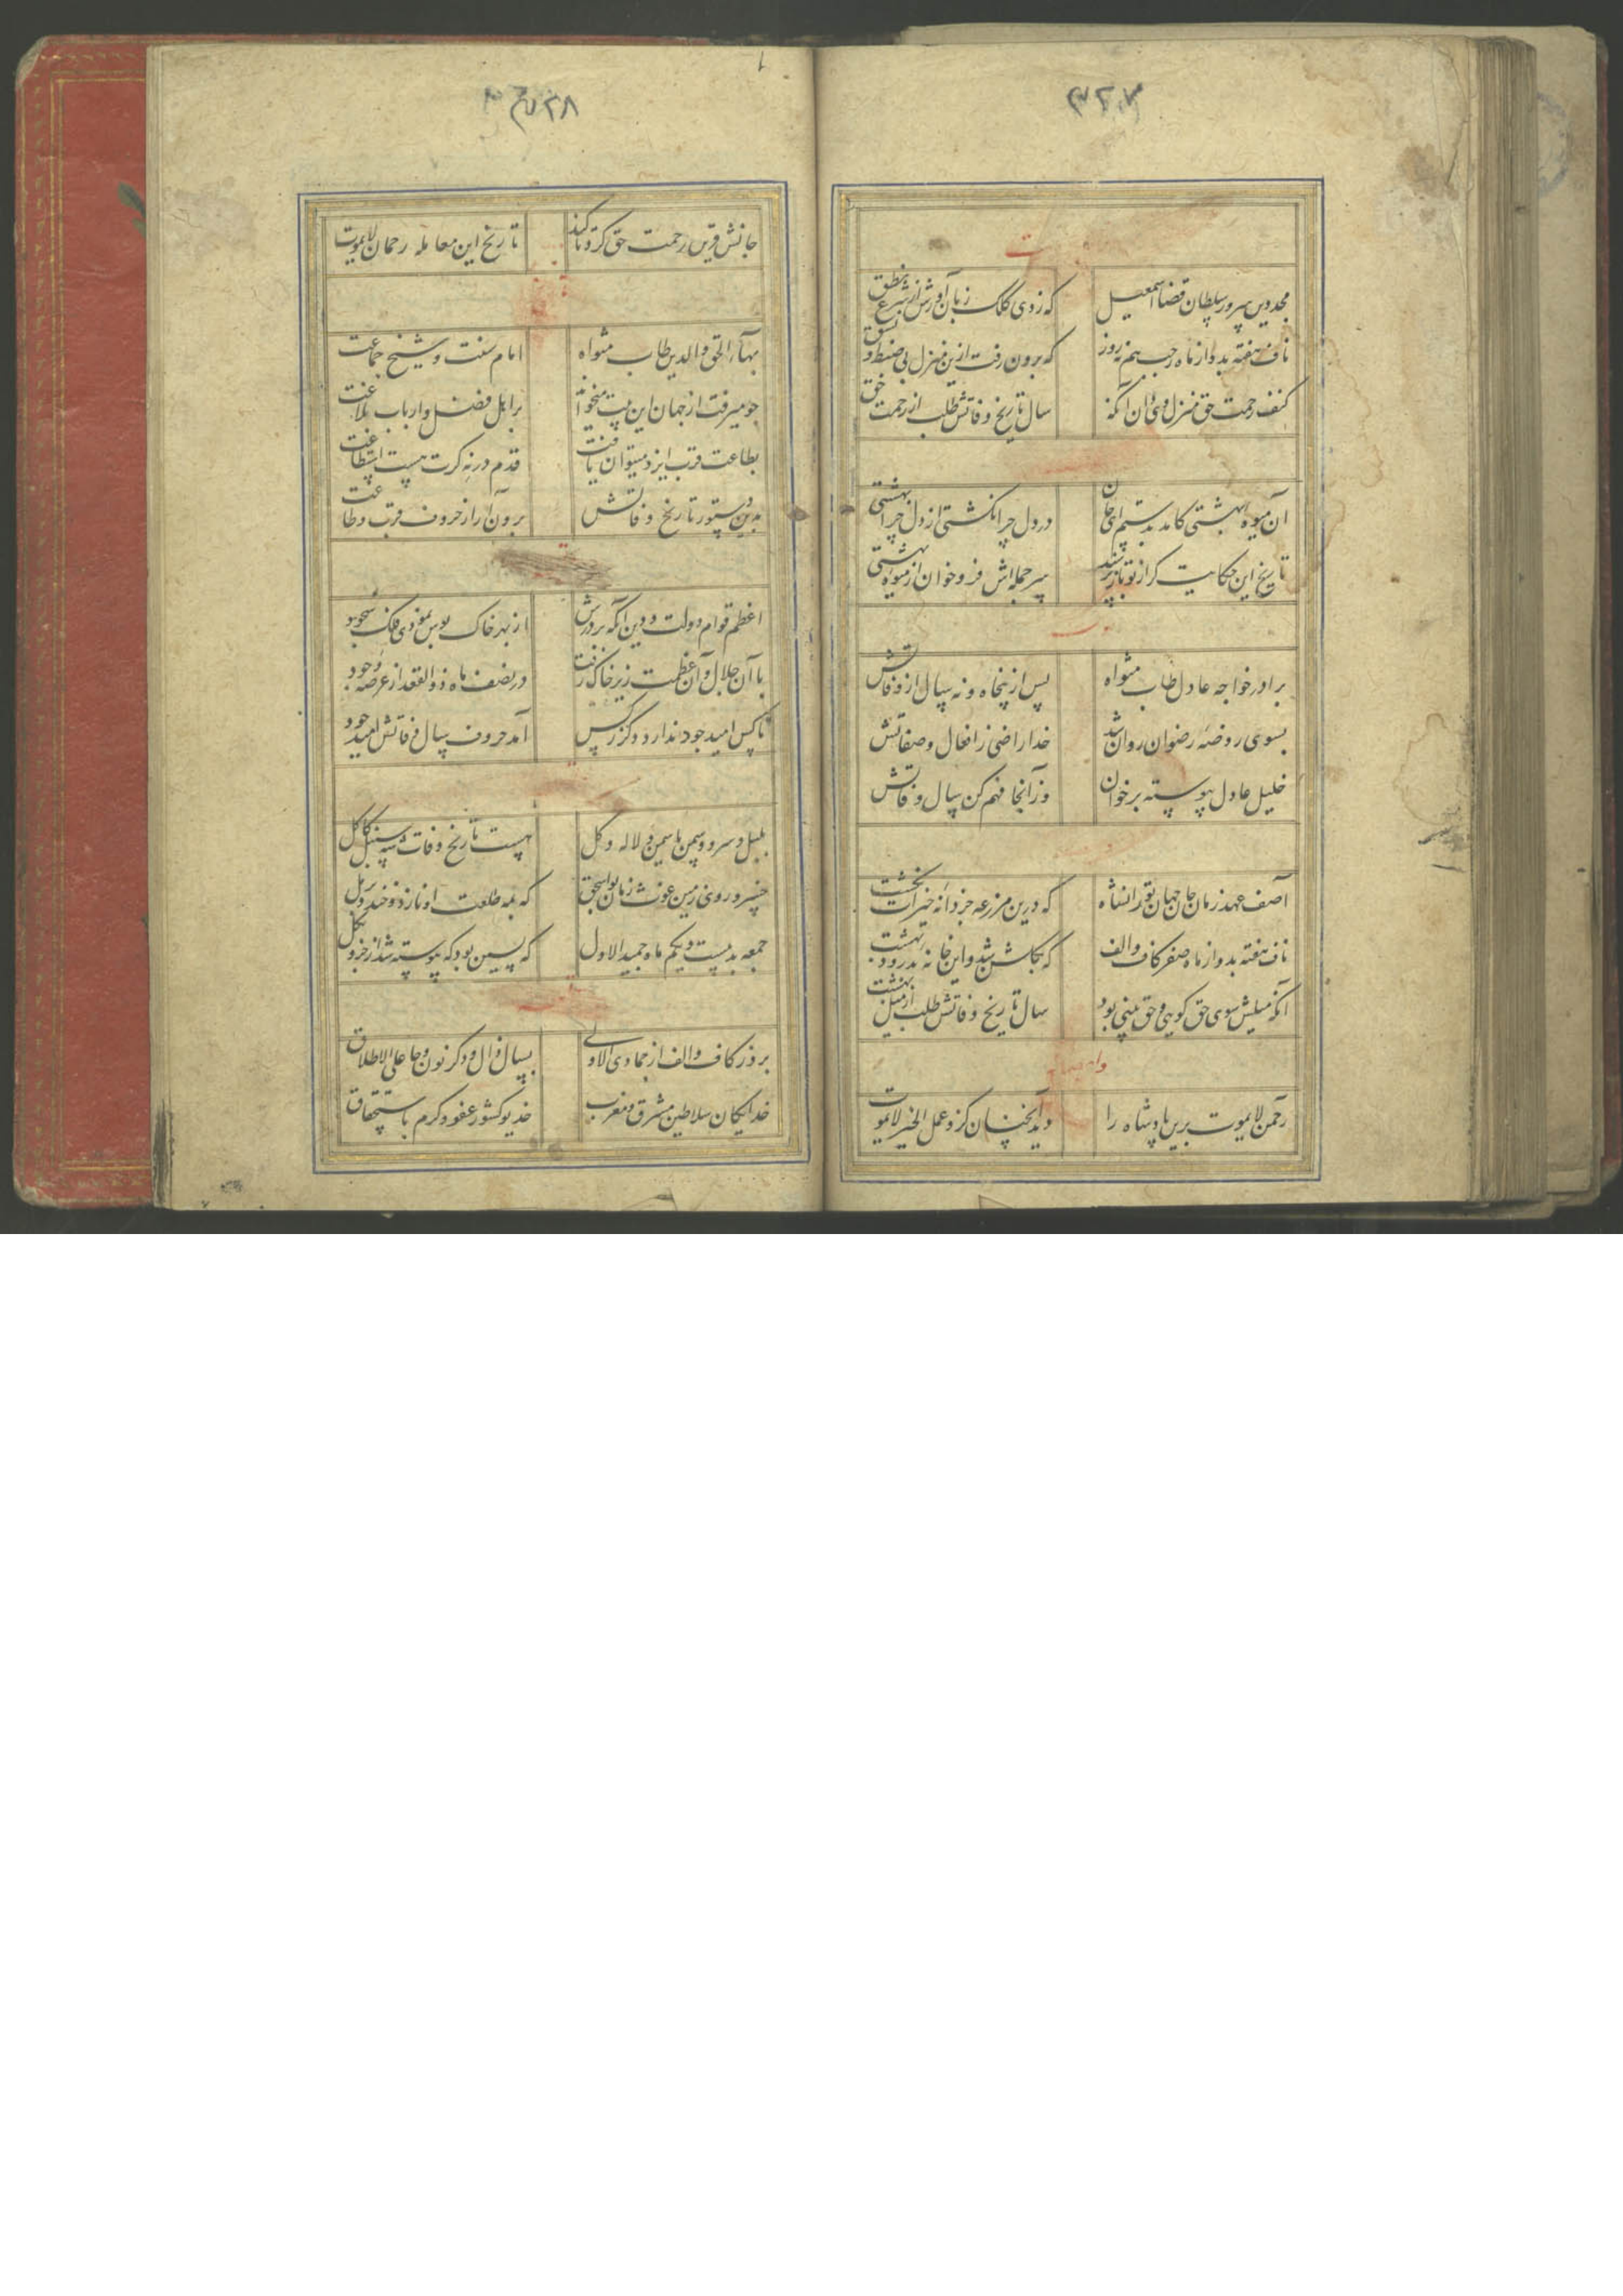 ۳۲۷
مجد دین سرور سلطان قضا اسمعیل که زدی کلک زبان آورش از شرع نطق
ناف هفته بد و از ماه رجب بنم روز که برون رفت ازین منزل بی ضبط و نسق
کنف رحمت حق منزل وی دان آنگه سال تاریخ وفاتش طلب از رحمت حق
آن میوه بهشتی کامد بدستم ای جان در دل چرا نکشتی از دل چرا بهشتی
تاریخ این حکایت گر از تو باز پرسند سر جمله‌اش فرو خوان از میوه بهشتی
برادر خواجه عادل طاب مثواه پس از پنجاه و نه سال از وفاتش
بسوی روضه رضوان روان شد خدا راضی ز افعال و صفاتش
خلیل عادل پیوسته بر خوان وز آنجا فهم کن سال وفاتش
آصف عهد زمان جان جهان تورانشاه که درین مزرعه جز دانه خیرات نکشت
ناف هفته بد و از ماه صفر کاف و الف که بگلشن شد و این خانه بدرود بهشت
آنکه میلش سوی حق گویی و حق بینی بود سال تاریخ وفاتش طلب از میل بهشت
وله ایضا
رحمن لایموت برین پادشاه را دید آنچنان کزو عمل الخیر لایموت
۳۲۸
جانش قرین رحمت حق کرد تا کند تاریخ این معامله رحمان لایموت
بهاء الحق والدین طاب مثواه امام سنت و شیخ جماعت
چو میرفت از جهان این بیت میخواند بر اهل فضل و ارباب بلاغت
بطاعت قرب ایزد میتوان یافت قدم در نه گرت هست استطاعت
بدین دستور تاریخ وفاتش برون آر از حروف قرب و طاعت
اعظم قوام دولت و دین آنکه بر درش از بهر خاک بوس نمودی فلک سجود
با آن جلال و آن عظمت زیر خاک رفت در نصف ماه ذوالقعد از عرصه وجود
تا کس امید جود ندارد دگر ز کس آمد حروف سال وفاتش امید جود
بلبل و سرو و سمن یاسمن و لاله و گل هست تاریخ وفات شه سنبل کاکل
خسرو روی زمین غوث زمان بو اسحق که بمه طلعت او نازد و خندد بر گل
جمعه بد بیست و یکم ماه جمید الاول که پسین بود که پیوسته شد از جزو بکل
بروز کاف و الف از جمادی الاولی بسال ذال و دگر نون و حا علی الاطلاق
خدایگان سلاطین مشرق و مغرب خدیو کشور عفو و کرم باستحقاق